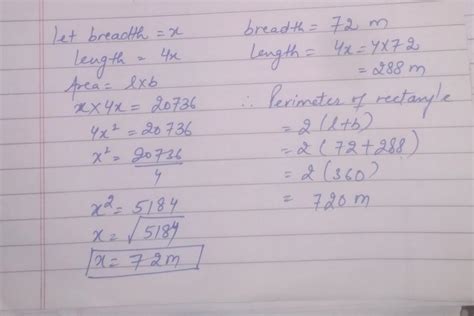 let breadth = x
length = 4x
Area = l×b
x × 4x = 20736
4x² = 20736
x² = 20736
4
x² = 5184
x = √5184
x = 72m
breadth = 72 m
length = 4x = 4×72
= 288 m
∴ Perimeter of rectangle
= 2(l+b)
= 2(72+288)
= 2(360)
= 720m